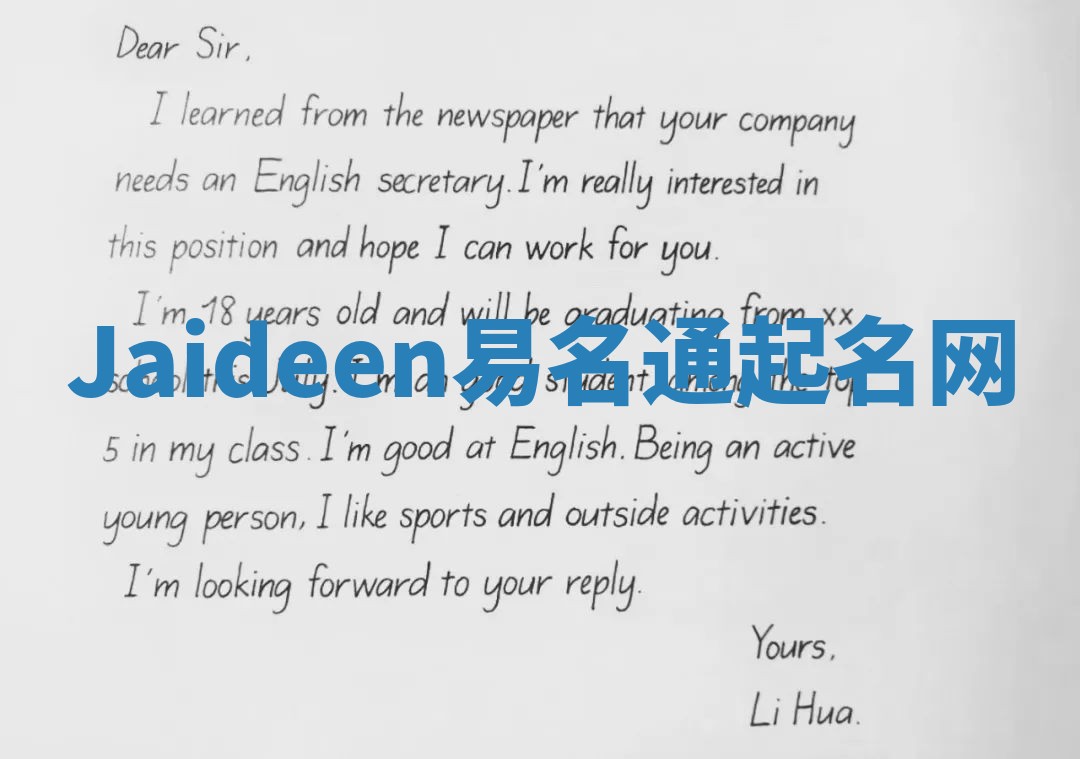 Dear Sir,
I learned from the newspaper that your company
needs an English secretary. I'm really interested in
this position and hope I can work for you.
I'm 18 years old and will be graduating from xx
Jaideen易名通起名网
school this July. I'm an good student among the top
5 in my class. I'm good at English. Being an active
young person, I like sports and outside activities.
I'm looking forward to your reply.
Yours,
Li Hua.